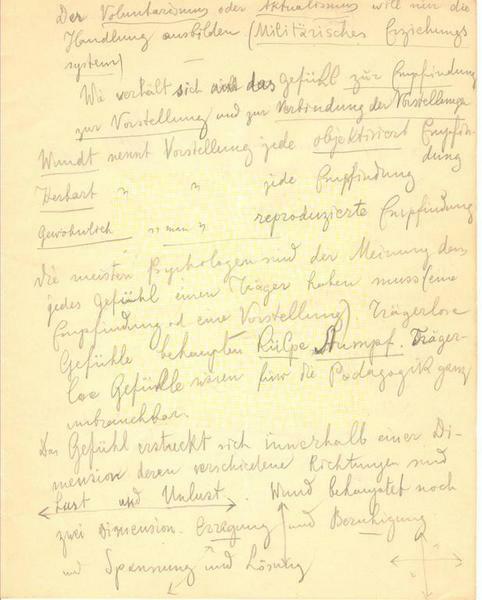 Der Voluntarismus oder Aktualismus will nur die
Handlung ausbilden (Militärisches Erziehungs
system)
Wie verhält sich das Gefühl zur Empfindung
zur Vorstellung und zur Verbindung der Vorstellungen
Wundt nennt Vorstellung jede objektiviert Empfin-
dung
Herbart " " jede Empfindung
Gewöhnlich " man " reproduzierte Empfindung
Die meisten Psychologen sind der Meinung dass
jedes Gefühl einen Träger haben muss (eine
Empfindung od eine Vorstellung) Trägerlose
Gefühle behaupten Külpe Stumpf. Träger-
lose Gefühle wären für die Pädagogik ganz
unbrauchbar.
Das Gefühl erstreckt sich innerhalb einer Di-
mension deren verschiedene Richtungen sind
Lust und Unlust. Wund behauptet noch
zwei Dimension. Erregung und Beruhigung
und Spannung und Lösung